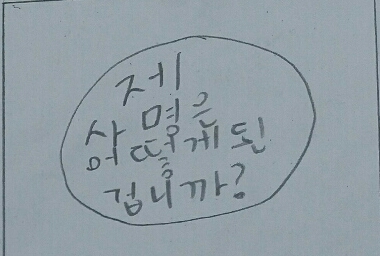 제
사명은
어떻게된
겁니까?